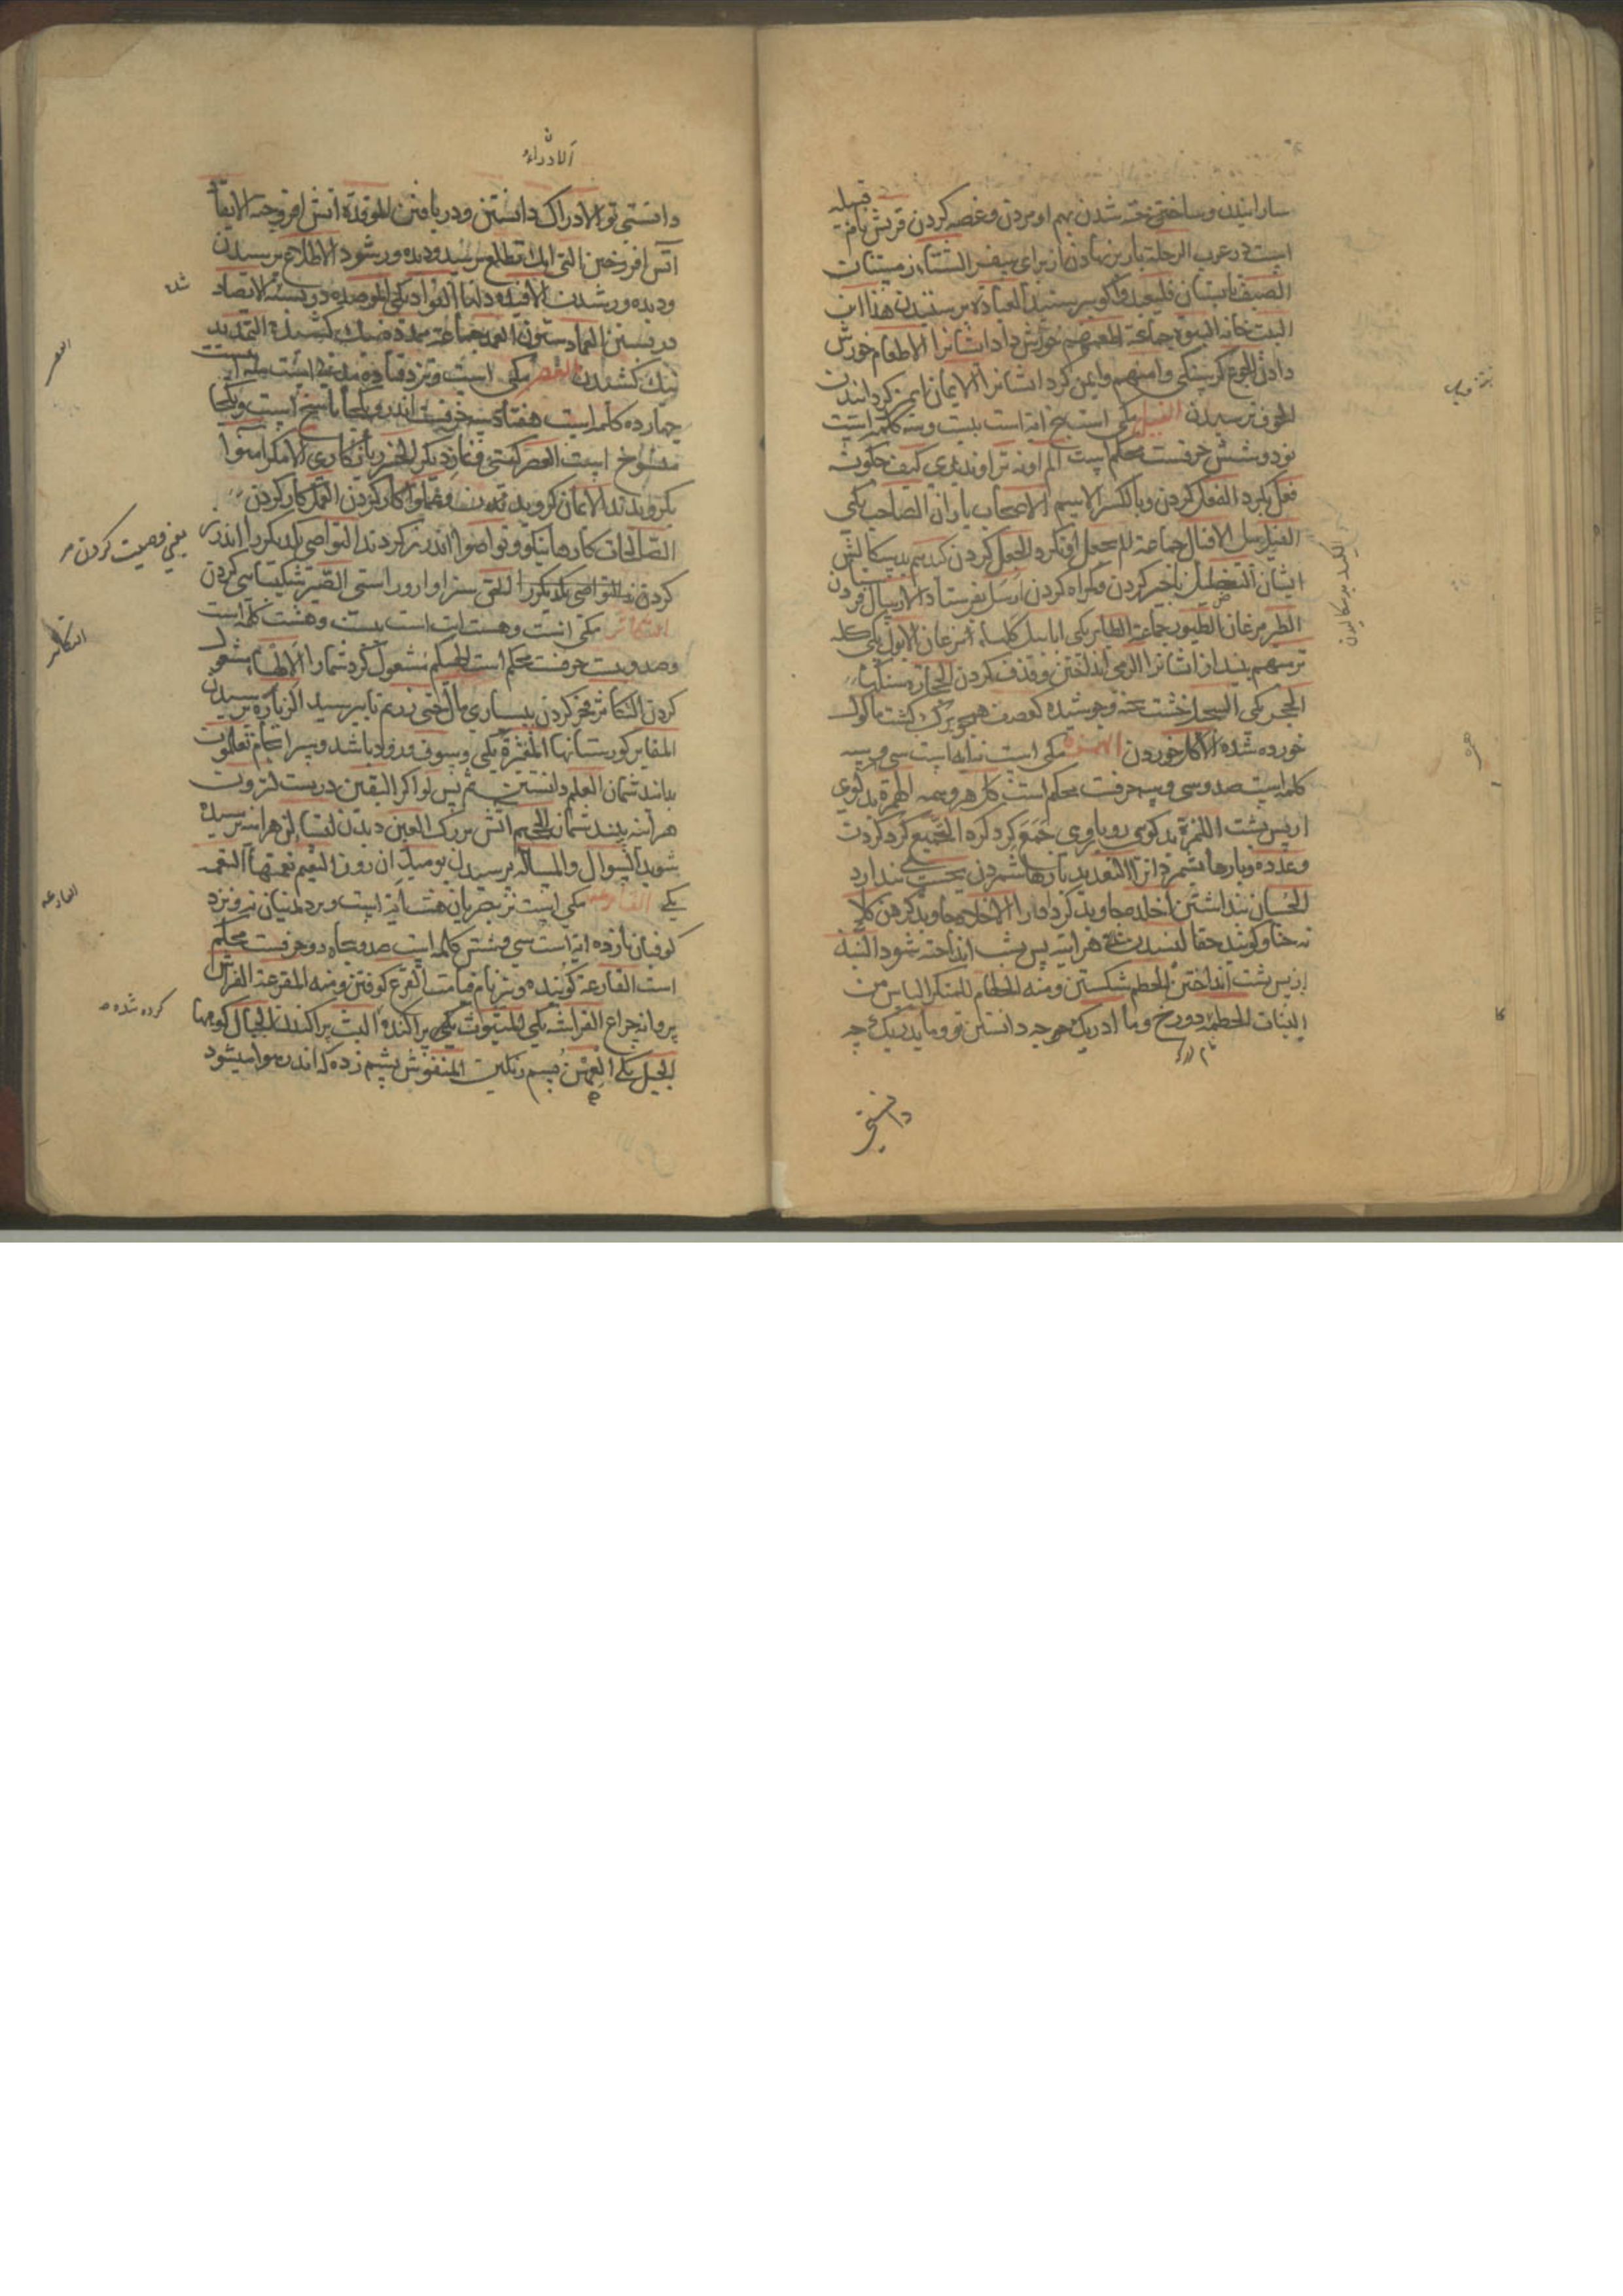 قبیله
سازانیدن و ساختن شدن بهم او مردن و غصه کردن قریش نام
است در عرب الرحلة بار بر نهادن از برای سفر الشتاء زمستان
الصیف تابستان فلیعبدوا کو بپرستید العبادة پرستیدن هذا این
البیت خانه البیوت جماعة اطعمهم خورش داد ایشانرا الاطعام خورش
دادن الجوع کرسنکی وامنهم وایمن کرد ایشانرا الایمان ایمن کردانیدن
الخوف ترسیدن الفیل مکی است پنج ایة است بیست وسه کلمه است
نود و شش حرفست محکم است الم اونه تر اوندیدی کیف چکونه
فعل بکرد الفعل کردن وبالکسر الاسم الاصحاب یاران الصاحب یکی
الفیل پیل الافیال جماعة الم یجعل او نکرد الجعل کردن کیدهم بدسکالش
ایشان التضلیل بی خبر کردن وکمراه کردن ارسل بفرستاد الارسال فرستادن
الطیر مرغان الطیور جماعة الطایر یکی ابابیل کلهاء مرغان الابول یکی کله
ترمیهم بینداز ایشانرا الرمی انداختن و قذف کردن الحجارة سنکها
الحجر یکی السجیل خشت پخته وجوشیده کعصف همچو برک کشت ماکول
خورده شده الاکل خوردن الهمزة مکی است نه ایه است سی وسه
کلمه است صد وسی وسه حرفست محکم است کل هر وهمه الهمزة بدکوی
از پس پشت اللمزة بدکوی رویاروی جمع کرد کرد الجمع کرد کردن
وعدده وبارها بشمرد انرا التعدید بارها شمردن یحسب پندارد
الحسبان پنداشتن اخلده جاوید کرد او را الاخلاد جاوید کردن کلا
نه چنان کویند حقا لینبذن هراینه پس پشت انداخته شود النبذ
از پس پشت انداختن الحطم شکستن ومنه الحطام للمتکسر الیابس من
النبات الحطمة دوزخ وما ادریک چه چیز دانستن تو وما یدریک چه
نام درکه
دانستی
الکید بدسکالیدن
الادراء
دانستی تو الادراک دانستن ودریافتن الموقدة اتش افروخته الایقاد
اتش افروختن التی انک تطلع برسید ودیده ور شود الاطلاع برسیدن
ودیده ور شدن الافئدة دلها الفواد یکی الموصدة در بسته الایصاد
در بستن العماد ستون العمد جماعة ممددة نیک کشیده التمدید
نیک کشیدن العصر مکی است ونزد قتاده مدنی است سه ایت است
چهارده کلمه است هفتاد وسه حرفست اندرو یکجا ناسخ است ویکجا
منسوخ است العصر کیتی ونماز دیکر الخسر زیانکاری الا مکر امنوا
بکرویدند الایمان کرویدن وعملوا کار کردن العمل کار کردن
الصالحات کارهاء نیکو وتواصوا اندرز کردند التواصی یکدیکر را اندرز
کردن التواصی یکدیکر را الحق سزاوار و راستی الصبر شکیبایی کردن
التکاثر مکی است وهشت ایت است بیست وهشت کلمه است
وصد وبیست حرفست محکم است الهیکم مشغول کرد شما را الالهاء مشغول
کردن التکاثر فخر کردن ببسیاری مال حتی زرتم تا برسید الزیارة برسیدن
المقابر کورستانها المقبرة یکی وسوف وزود باشد وسرانجام تعلمون
بدانید شمایان العلم دانستن ثم پس لو اکر الیقین درست لترون
هراینه بینید شمایان الجحیم اتش بزرک العین دیدن لتسالن هراینه پرسیده
شوید السوال والمسالة پرسیدن یومئذ ان روز النعیم نعمتها النعمة
یکی القارعة مکی است نزد بصریان هشت ایة است ونزد مدنیان ده ونزد
کوفیان یازده ایة است سی وشش کلمه است صد وپنجاه دو حرفست محکم
است القارعة کوبنده ونیز نام قیامت القرع کوفتن ومنه المقرعة الفراش
پروانه چراغ الفراشة یکی المبثوث پراکنده البث پراکندن الجبال کوهها
الجبل یکی العهن پشم رنکین المنفوش پشم زده که اندر هوا میشود
شدن
العصر
یعنی وصیت کردن
التکاثر
القارعه
کرده شده